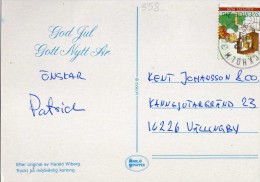 558
God Jul
Gott Nytt År
ÖNSKAR
Patrick
KENT JOHANSSON & CO.
KANNGJUTARGRÄND 23
16226 VÄLLINGBY
Efter original av Harald Wiberg
Tryckt på miljövänlig kartong